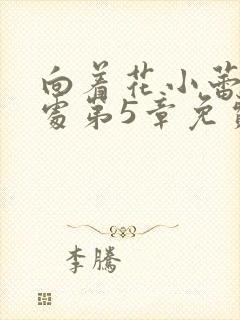 向着花小蕾
处第5章免
李腾